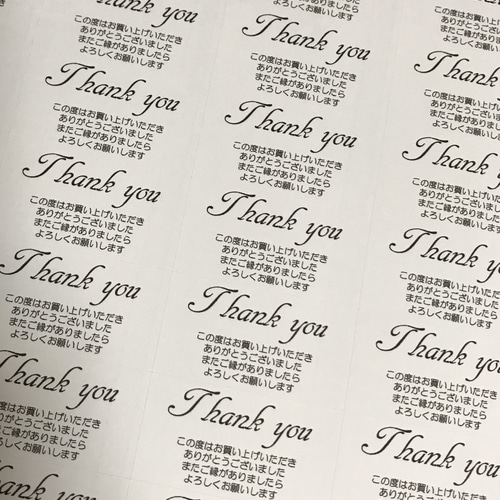 Thank you
この度はお買い上げいただき
ありがとうございました
またご縁がありましたら
よろしくお願いします
Thank you
この度はお買い上げいただき
ありがとうございました
またご縁がありましたら
よろしくお願いします
Thank you
この度はお買い上げいただき
ありがとうございました
またご縁がありましたら
よろしくお願いします
Thank you
この度はお買い上げいただき
ありがとうございました
またご縁がありましたら
よろしくお願いします
Thank you
の度はお買い上げいただき
ありがとうございました
またご縁がありましたら
よろしくお願いします
よろしくお願いします
Thank you
この度はお買い上げいただき
ありがとうございました
またご縁がありましたら
よろしくお願いします
Thank you
この度はお買い上げいただき
ありがとうございました
またご縁がありましたら
よろしくお願いします
Thank you
この度はお買い上げいただき
ありがとうございました
またご縁がありましたら
よろしくお願いします
Thank you
この度はお買い上げいただき
ありがとうございました
またご縁がありましたら
よろしくお願いします
Thank you
この度はお買い上げいただき
ありがとうございました
またご縁がありましたら
よろしくお願いします
この度はお買い上げ
ありがとうござい
またご縁がありま
よろしくお願いし
Thank
この度はお買い上げ
ありがとうござい
またご縁がありま
よろしくお願いしま
Thank
この度はお買い上げい
ありがとうございま
またご縁がありまし
よろしくお願いします
Thank
この度はお買い上げいた
ありがとうございまし
またご縁がありました
よろしくお願いします
Thank
この度はお買い上げいただ
ありがとうございました
またご縁がありましたら
よろしくお願いします
Thank
この度はお買い上げいただき
ありがとうございました